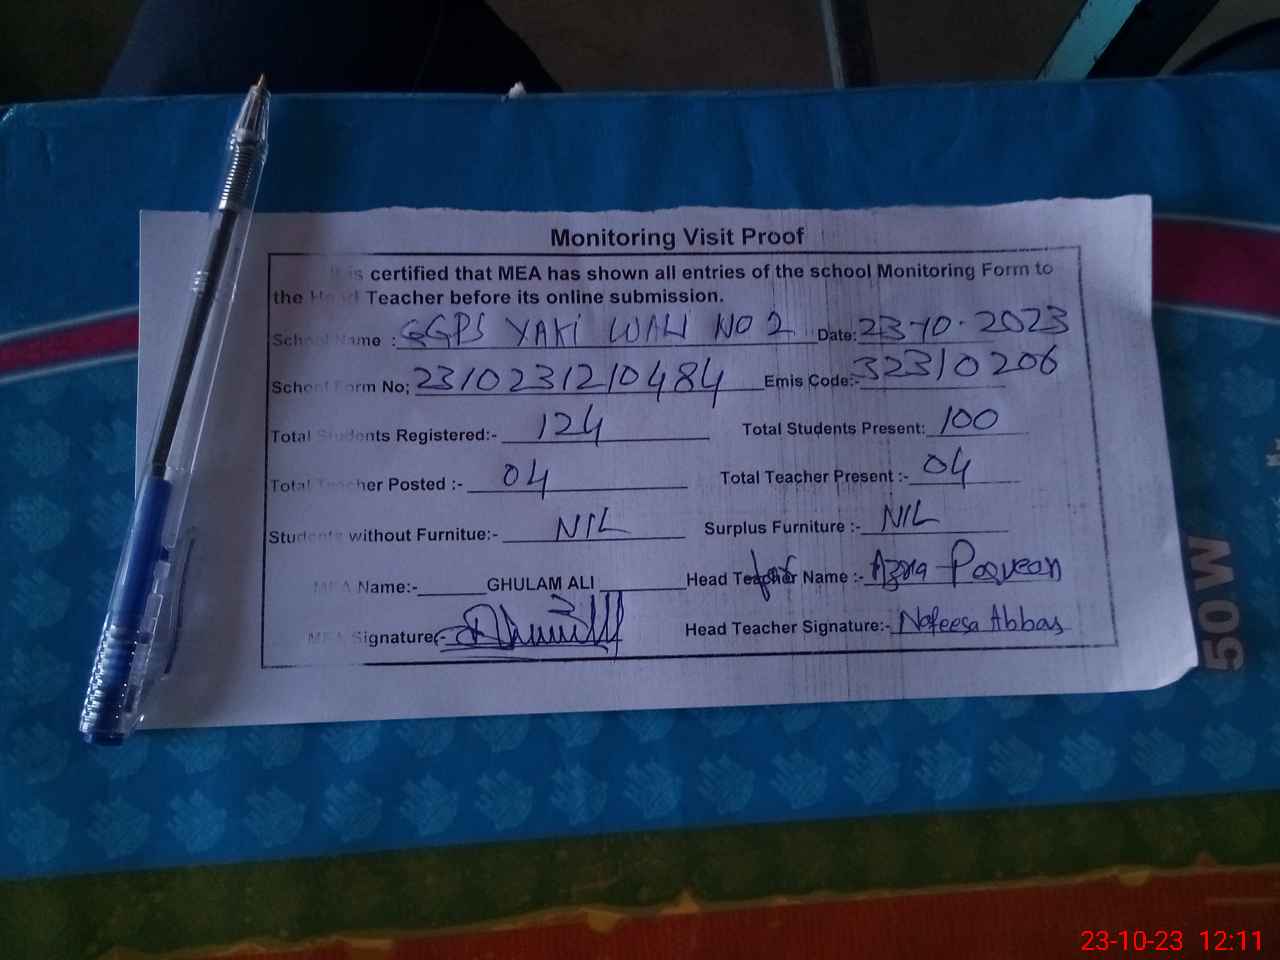 Monitoring Visit Proof
It is certified that MEA has shown all entries of the school Monitoring Form to
the Head Teacher before its online submission.
School Name : GGPS YAKI WALI NO 2 Date: 23-10-2023
School Form No; 2310231210484 Emis Code:- 32310206
Total Students Registered:- 124 Total Students Present: 100
Total Teacher Posted :- 04 Total Teacher Present :- 04
Students without Furnitue:- NIL Surplus Furniture :- NIL
MEA Name:- GHULAM ALI Head Teacher Name :- Azra Parveen
for
MEA Signature:- Head Teacher Signature:- Nafeesa Abbas
50W
23-10-23 12:11